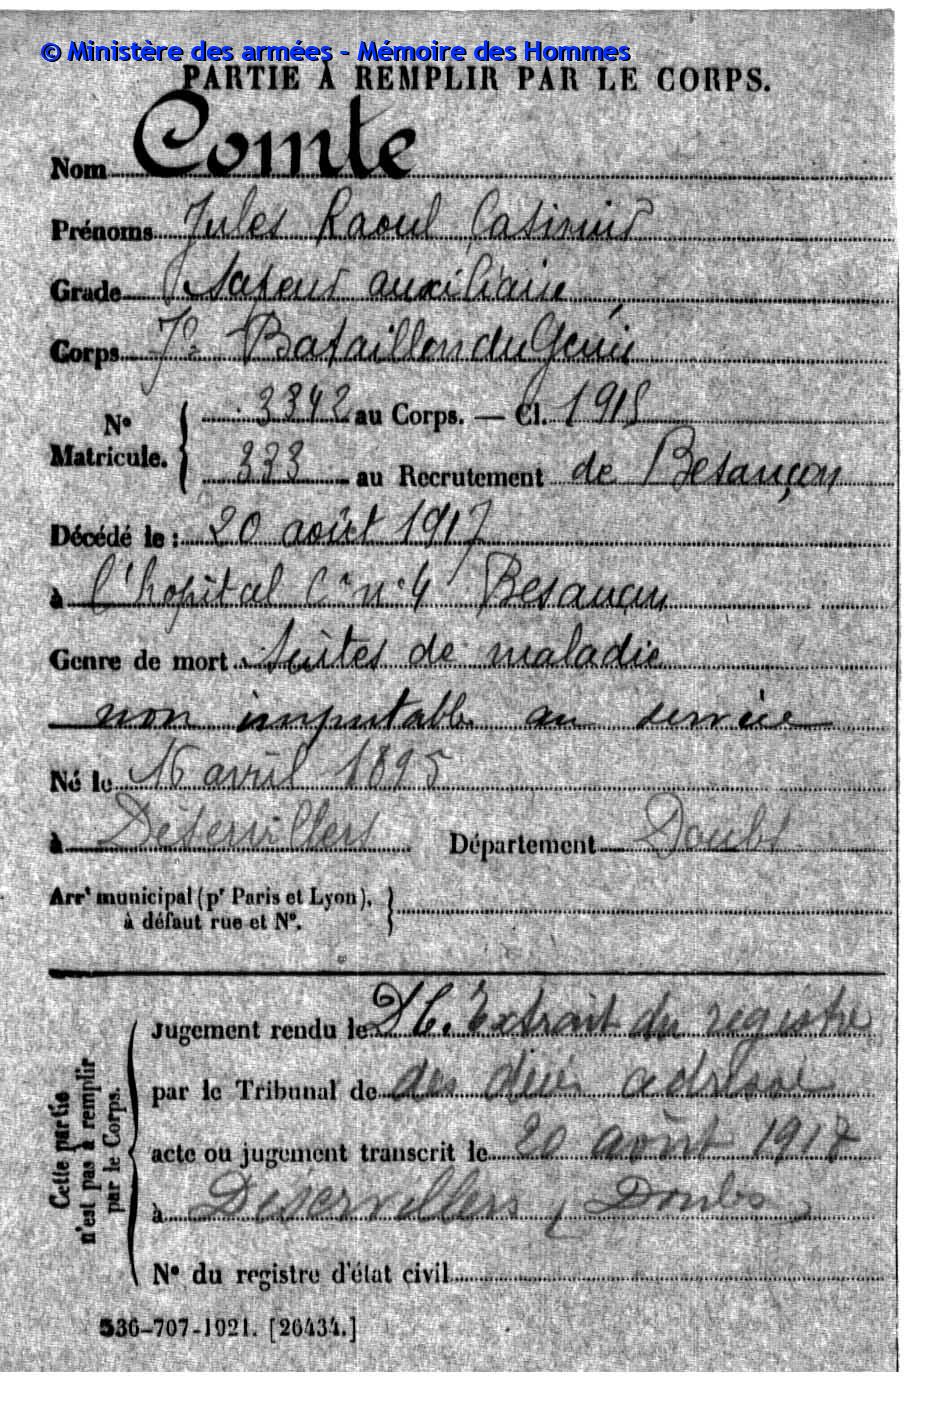 © Ministère des armées - Mémoire des Hommes
PARTIE À REMPLIR PAR LE CORPS.
Nom Comte
Prénoms Jules Raoul Casimir
Grade Sapeur auxiliaire
Corps 7e Bataillon du Génie
N° Matricule. { 3342 au Corps. — Cl. 1915
333 au Recrutement de Besançon
Décédé le : 20 août 1917
à l'hopital Cre n° 4 Besançon
Genre de mort Suites de maladie
non imputable au service
Né le 16 avril 1895
à Déservillers Département Doubs
Arrt municipal (pr Paris et Lyon), }
à défaut rue et N°.
Cette partie
n'est pas à remplir
par le Corps.
Jugement rendu le Extrait du registre
par le Tribunal de des décès adressé
acte ou jugement transcrit le 20 août 1917
à Déservillers (Doubs)
N° du registre d'état civil
536-707-1921. [26434.]